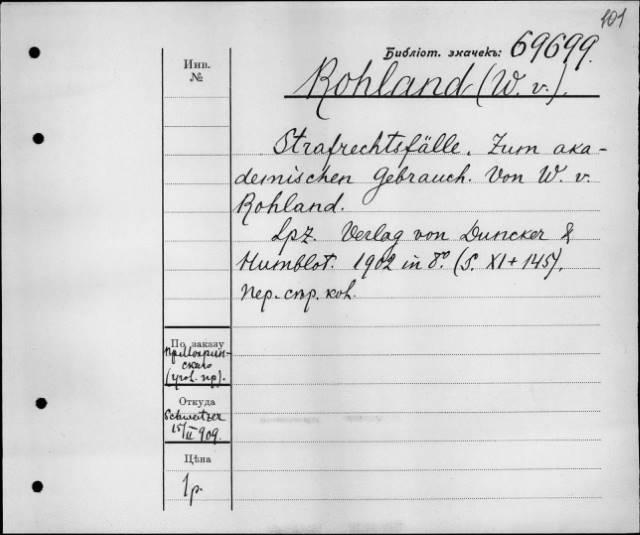 101
Библіот. значекъ: 69699.
Инв.
№
Rohland (W. v.).
Strafrechtsfälle. Zum aka-
demischen Gebrauch. Von W. v.
Rohland.
Lpz. Verlag von Duncker &
Humblot. 1902 in 8º. (S. XI + 145).
Пер. стр. кон.
По заказу
пр. Мокрин-
скаго
(угол. пр).
Откуда
Schweitzer
15/II 909.
Цѣна
1 р.